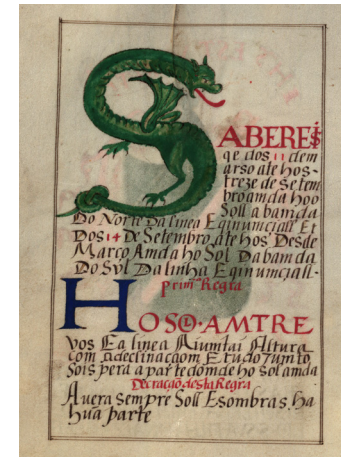 SABEREIS
qe dos 11 dem
arso ate hos
treze de Setem
bro amda hoo
Soll abamda
Do Norte Da linea Eqinumciall Et
Dos 14 De Setembro ate hos Desde
Março Amda ho Sol Da bamda
Do Svl Da linha Eqinumciall.
prim.ra Regra
HO SOL AMTRE
vos Ea linea Aiumtai Altura
com adeclinaçaom E tudo Jumto
Sois pera a parte domde ho sol amda
Decraçõ desta Regra
Avera sempre Soll E sombras ha
hũa parte